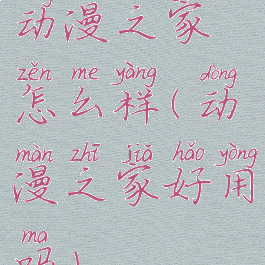 动漫之家
zěn me yàng dòng
怎么样(动
màn zhī jiā hǎo yòng
漫之家好用
ma
吗)